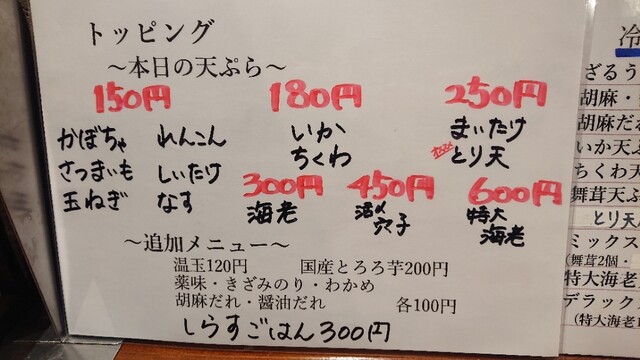 トッピング
～本日の天ぷら～
150円 180円 250円
かぼちゃ れんこん いか まいたけ
さつまいも しいたけ ちくわ とり天
玉ねぎ なす
300円 450円 600円
海老 活〆穴子 特大海老
～追加メニュー～
温玉120円 国産とろろ芋200円
薬味・きざみのり・わかめ
胡麻だれ・醤油だれ 各100円
しらすごはん300円
冷
ざるう
胡麻・
胡麻だれ
いか天ぷ
ちくわ天
舞茸天ぷ
とり天
ミックス
（舞茸2個・
特大海老
デラック
（特大海老1